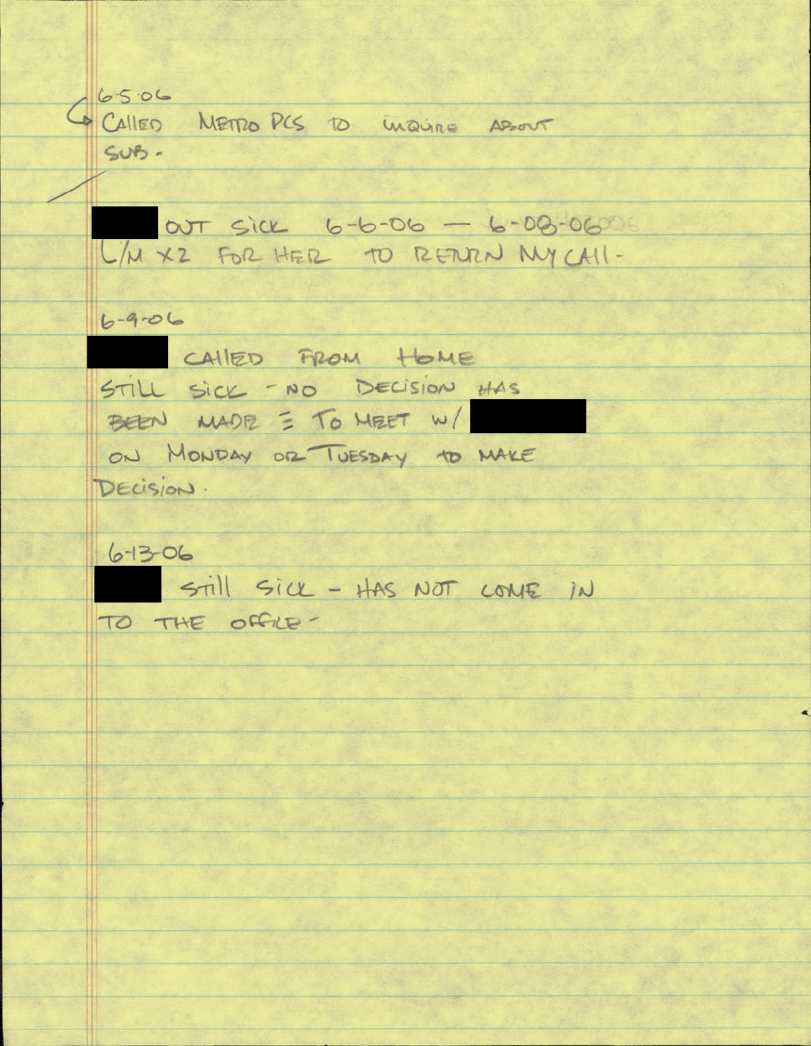 6-5-06
CALLED METRO PCS TO INQUIRE ABOUT
SUB-
OUT SICK 6-6-06 — 6-08-06
L/M X2 FOR HER TO RETURN MY CALL-
6-9-06
CALLED FROM HOME
STILL SICK - NO DECISION HAS
BEEN MADE TO MEET W/
ON MONDAY OR TUESDAY TO MAKE
DECISION.
6-13-06
STILL SICK - HAS NOT COME IN
TO THE OFFICE-